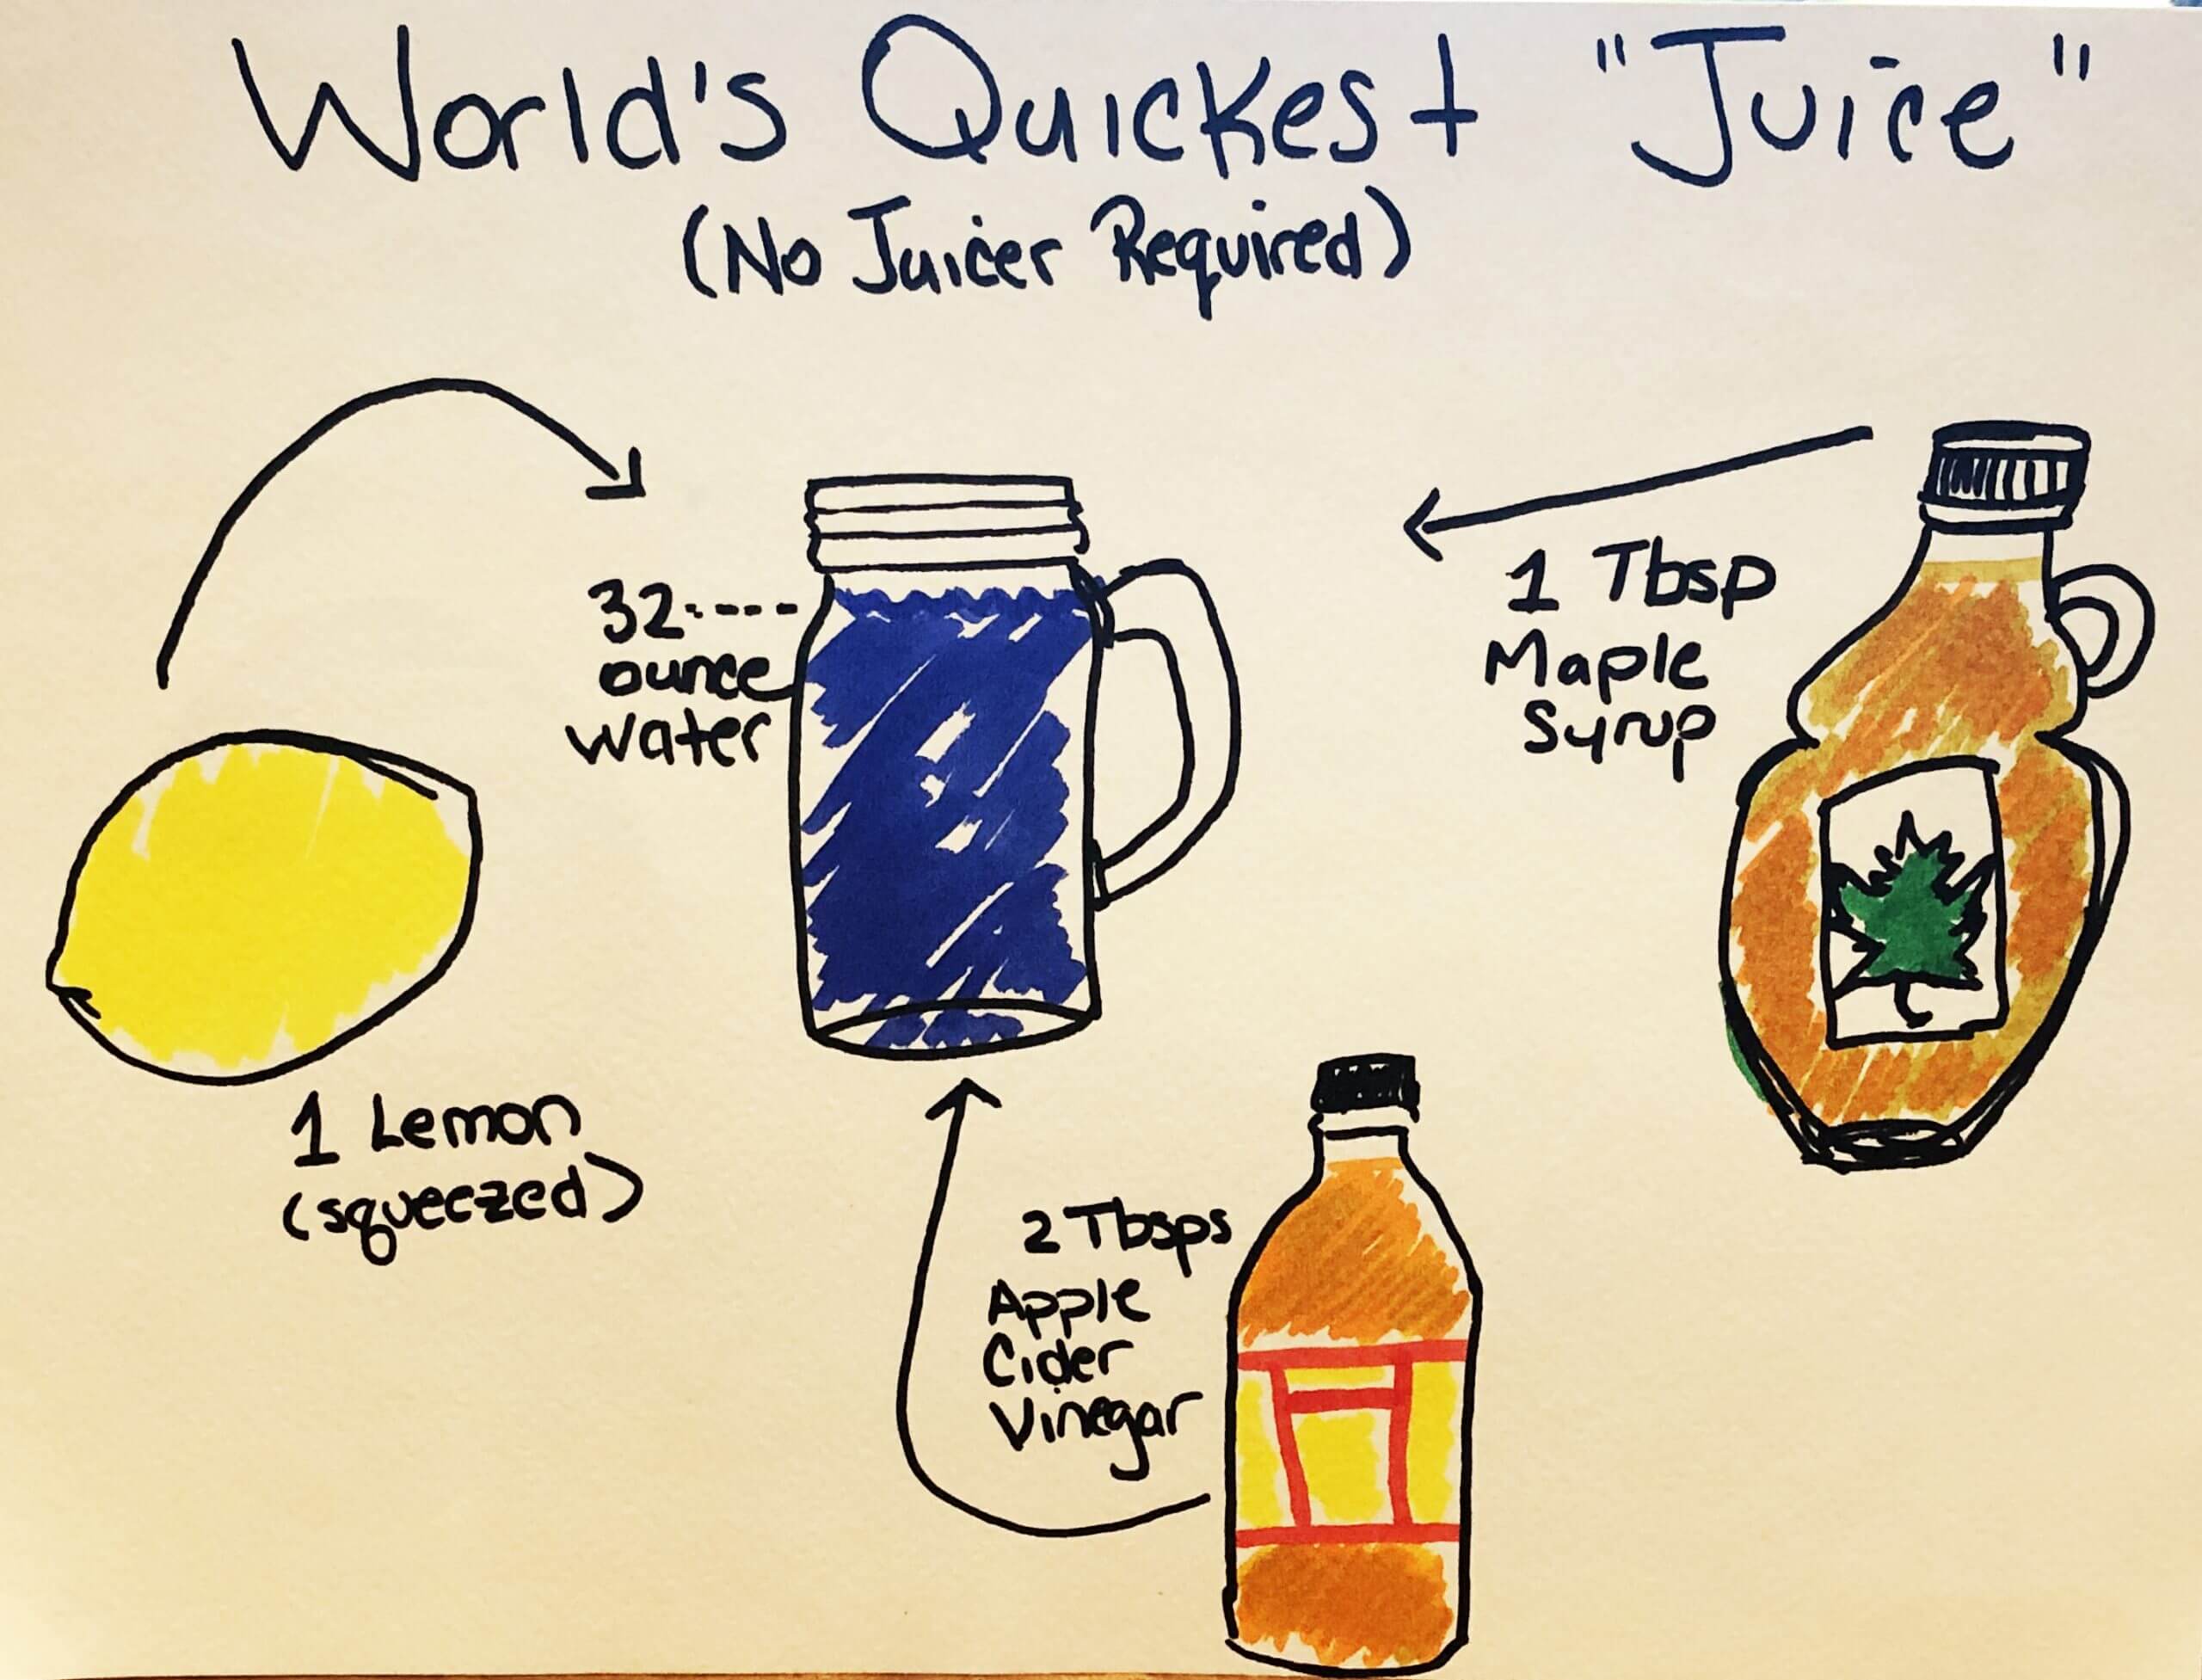 World's Quickest "Juice"
(No Juicer Required)
32----
ounce
water
1 Tbsp
Maple
Syrup
1 Lemon
(squeezed)
2 Tbsps
Apple
Cider
Vinegar